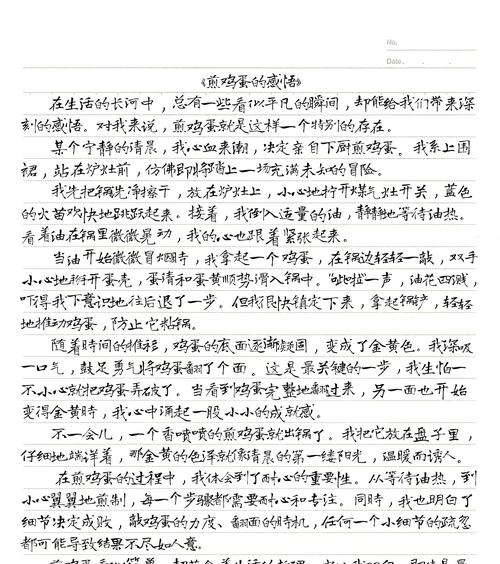 No.
Date.
《煎鸡蛋的感悟》
在生活的长河中，总有一些看似平凡的瞬间，却能给我们带来深
刻的感悟。对我来说，煎鸡蛋就是这样一个特别的存在。
某个宁静的清晨，我心血来潮，决定亲自下厨煎鸡蛋。我系上围
裙，站在炉灶前，仿佛即将踏上一场充满未知的冒险。
我先把锅洗净擦干，放在炉灶上，小心地拧开煤气灶开关，蓝色
的火苗欢快地跳跃起来。接着，我倒入适量的油，静静地等待油热。
看着油在锅里微微晃动，我的心也跟着紧张起来。
当油开始微微冒烟时，我拿起一个鸡蛋，在锅边轻轻一敲，双手
小心地掰开蛋壳，蛋清和蛋黄顺势滑入锅中。“呲啦”一声，油花四溅，
吓得我下意识地往后退了一步。但我很快镇定下来，拿起锅铲，轻轻
地推动鸡蛋，防止它粘锅。
随着时间的推移，鸡蛋的底面逐渐凝固，变成了金黄色。我深吸
一口气，鼓足勇气将鸡蛋翻了个面。这是最关键的一步，我生怕一
不小心就把鸡蛋弄破了。当看到鸡蛋完整地翻过来，另一面也开始
变得金黄时，我心中涌起一股小小的成就感。
不一会儿，一个香喷喷的煎鸡蛋就出锅了。我把它放在盘子里，
仔细地端详着，那金黄的色泽就像清晨的第一缕阳光，温暖而诱人。
在煎鸡蛋的过程中，我体会到了耐心的重要性。从等待油热，到
小心翼翼地煎制，每一个步骤都需要耐心和专注。同时，我也明白了
细节决定成败，敲鸡蛋的力度、翻面的时机，任何一个小细节的疏忽
都可能导致结果不尽如人意。